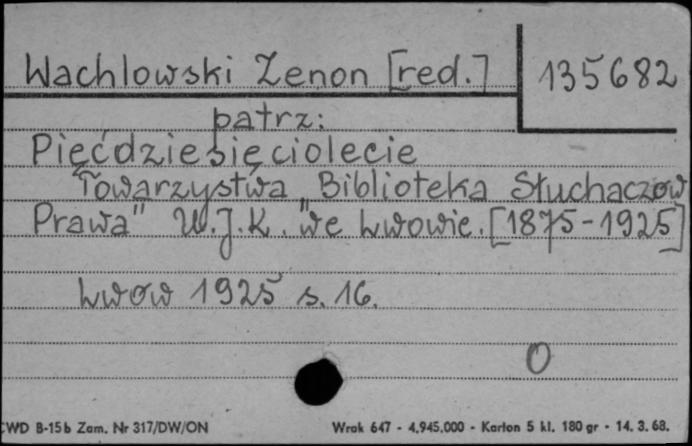 Wachlowski Zenon [red.] 135682
patrz:
Pięćdziesięciolecie
Towarzystwa „Biblioteka Słuchaczów
Prawa" U.J.K. we Lwowie. [1875-1925]
Lwów 1925 s. 16.
0
CWD B-15b Zam. Nr 317/DW/ON Wrak 647 - 4.945.000 - Karton 5 kl. 180 gr - 14. 3. 68.